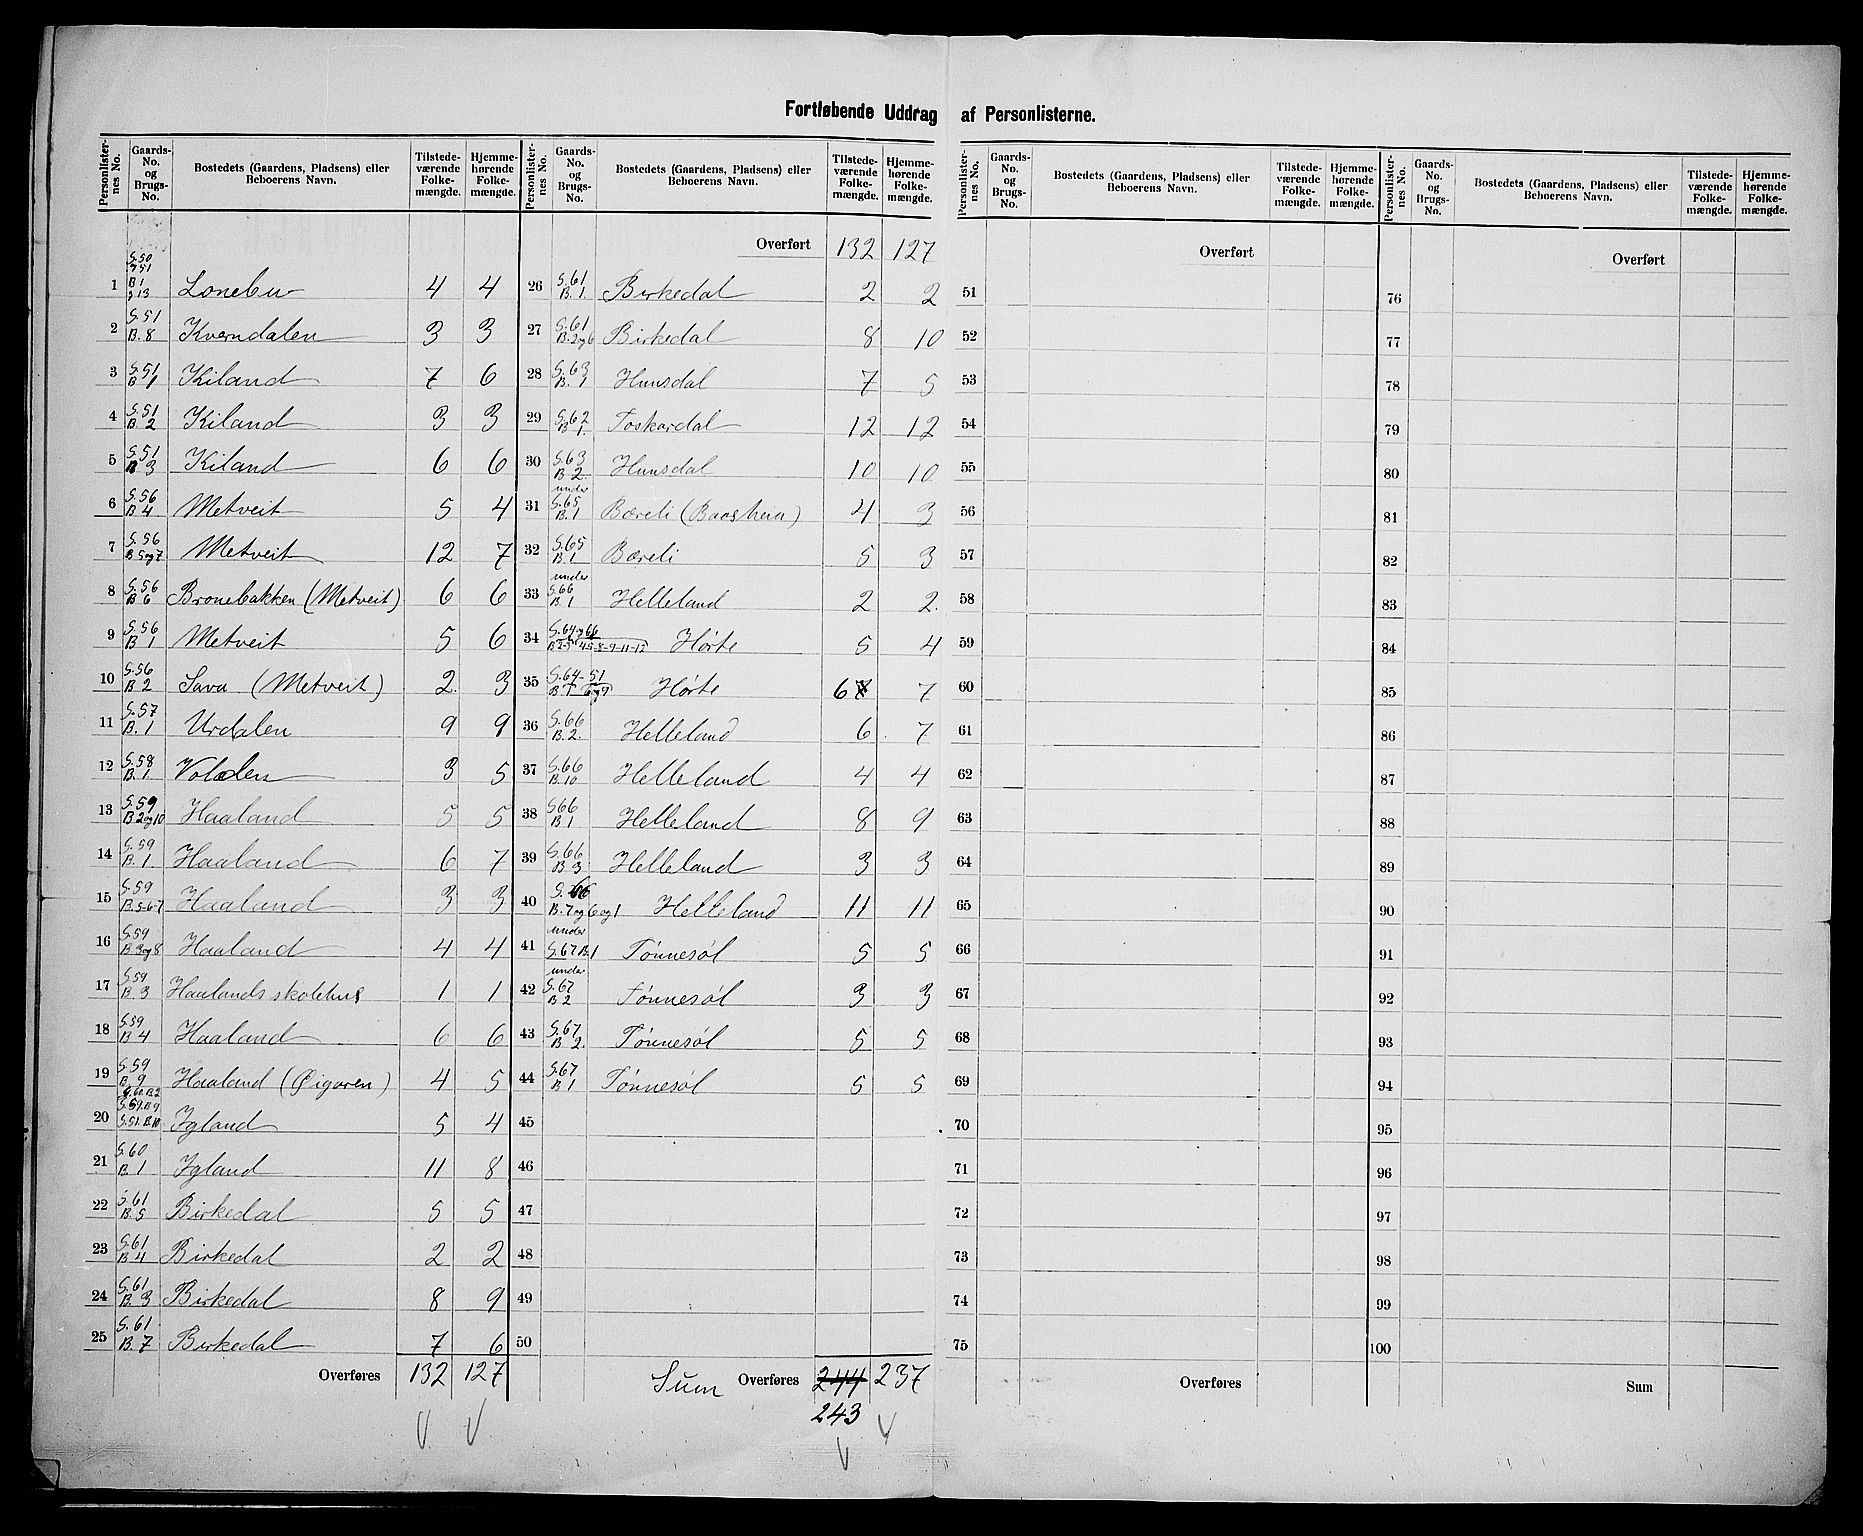 Fortløbende Uddrag af Personlisterne.
Personlisternes No. | Gaards-No. og Brugs-No. | Bostedets (Gaardens, Pladsens) eller Beboerens Navn. | Tilstedeværende Folkemængde. | Hjemmehørende Folkemængde.
1 | G.50 og 51 B.1 og 13 | Lonebu | 4 | 4
2 | G.51 B.8 | Kverndalen | 3 | 3
3 | G.51 B.1 | Kiland | 7 | 6
4 | G.51 B.2 | Kiland | 3 | 3
5 | G.51 B 3 | Kiland | 6 | 6
6 | G.56 B 4 | Metveit | 5 | 4
7 | G.56 B.5 og 7 | Metveit | 12 | 7
8 | G.56 B 6 | Bronebakken (Metveit) | 6 | 6
9 | G.56 B 1 | Metveit | 5 | 6
10 | G.56 B 2 | Sava (Metveit) | 2 | 3
11 | G.57 B.1 | Urdalen | 9 | 9
12 | G.58 B.1 | Volden | 3 | 5
13 | G.59 B 2 og 10 | Haaland | 5 | 5
14 | G.59 B.1 | Haaland | 6 | 7
15 | G.59 B.5-6-7 | Haaland | 3 | 3
16 | G.59 B.3 og 8 | Haaland | 4 | 4
17 | G.59 B.3 | Haalands skolehus | 1 | 1
18 | G.59 B 4 | Haaland | 6 | 6
19 | G.59 B.9 | Haaland (Øigaren) | 4 | 5
20 | G.60.B.2 G.59.B 9 G.51.B.10 | Igland | 5 | 4
21 | G.60 B.1 | Igland | 11 | 8
22 | G.61 B.5 | Birkedal | 5 | 5
23 | G.61 B 4 | Birkedal | 2 | 2
24 | G.61 B.3 | Birkedal | 8 | 9
25 | G.61 B.7 | Birkedal | 7 | 6
Overføres | 132 | 127
Personlisternes No. | Gaards-No. og Brugs-No. | Bostedets (Gaardens, Pladsens) eller Beboerens Navn. | Tilstedeværende Folkemængde. | Hjemmehørende Folkemængde.
Overført | 132 | 127
26 | G.61 B.1 | Birkedal | 2 | 2
27 | G.61 B.2 og 6 | Birkedal | 8 | 10
28 | G.63 B.1 | Hunsdal | 7 | 5
29 | G.62 B.1. | Toskardal | 12 | 12
30 | G.63 B 2. | Hunsdal | 10 | 10
31 | under G.65 B.1 | Bæreli (Baasheia) | 4 | 3
32 | G.65 B.1 | Bæreli | 5 | 3
33 | under G.66 B.1 | Helleland | 2 | 2.
34 | G.64 og 66 | Hørte | 5 | 4
35 | G.64-51 | Hørte | 6 7 | 7
36 | G.66 B.2. | Helleland | 6 | 7
37 | G.66 B.10 | Helleland | 4 | 4
38 | G66 B 1 | Helleland | 8 | 9
39 | G.66 B 3 | Helleland | 3 | 3
40 | G.66 B.7 og 6 og 1 | Helleland | 11 | 11
41 | under G.67 B.1 | Tønnesøl | 5 | 5
42 | under G.67 B 2 | Tønnesøl | 3 | 3
43 | G.67 B 2. | Tønnesøl | 5 | 5
44 | G.67 B 1 | Tønnesøl | 5 | 5
45
46
47
48
49
50
Sum Overføres | 244 | 237
243
Personlisternes No. | Gaards-No. og Brugs-No. | Bostedets (Gaardens, Pladsens) eller Beboerens Navn. | Tilstedeværende Folkemængde. | Hjemmehørende Folkemængde.
Overført
51
52
53
54
55
56
57
58
59
60
61
62
63
64
65
66
67
68
69
70
71
72
73
74
75
Overføres
Personlisternes No. | Gaards-No. og Brugs-No. | Bostedets (Gaardens, Pladsens) eller Beboerens Navn. | Tilstedeværende Folkemængde. | Hjemmehørende Folkemængde.
Overført
76
77
78
79
80
81
82
83
84
85
86
87
88
89
90
91
92
93
94
95
96
97
98
99
100
Sum